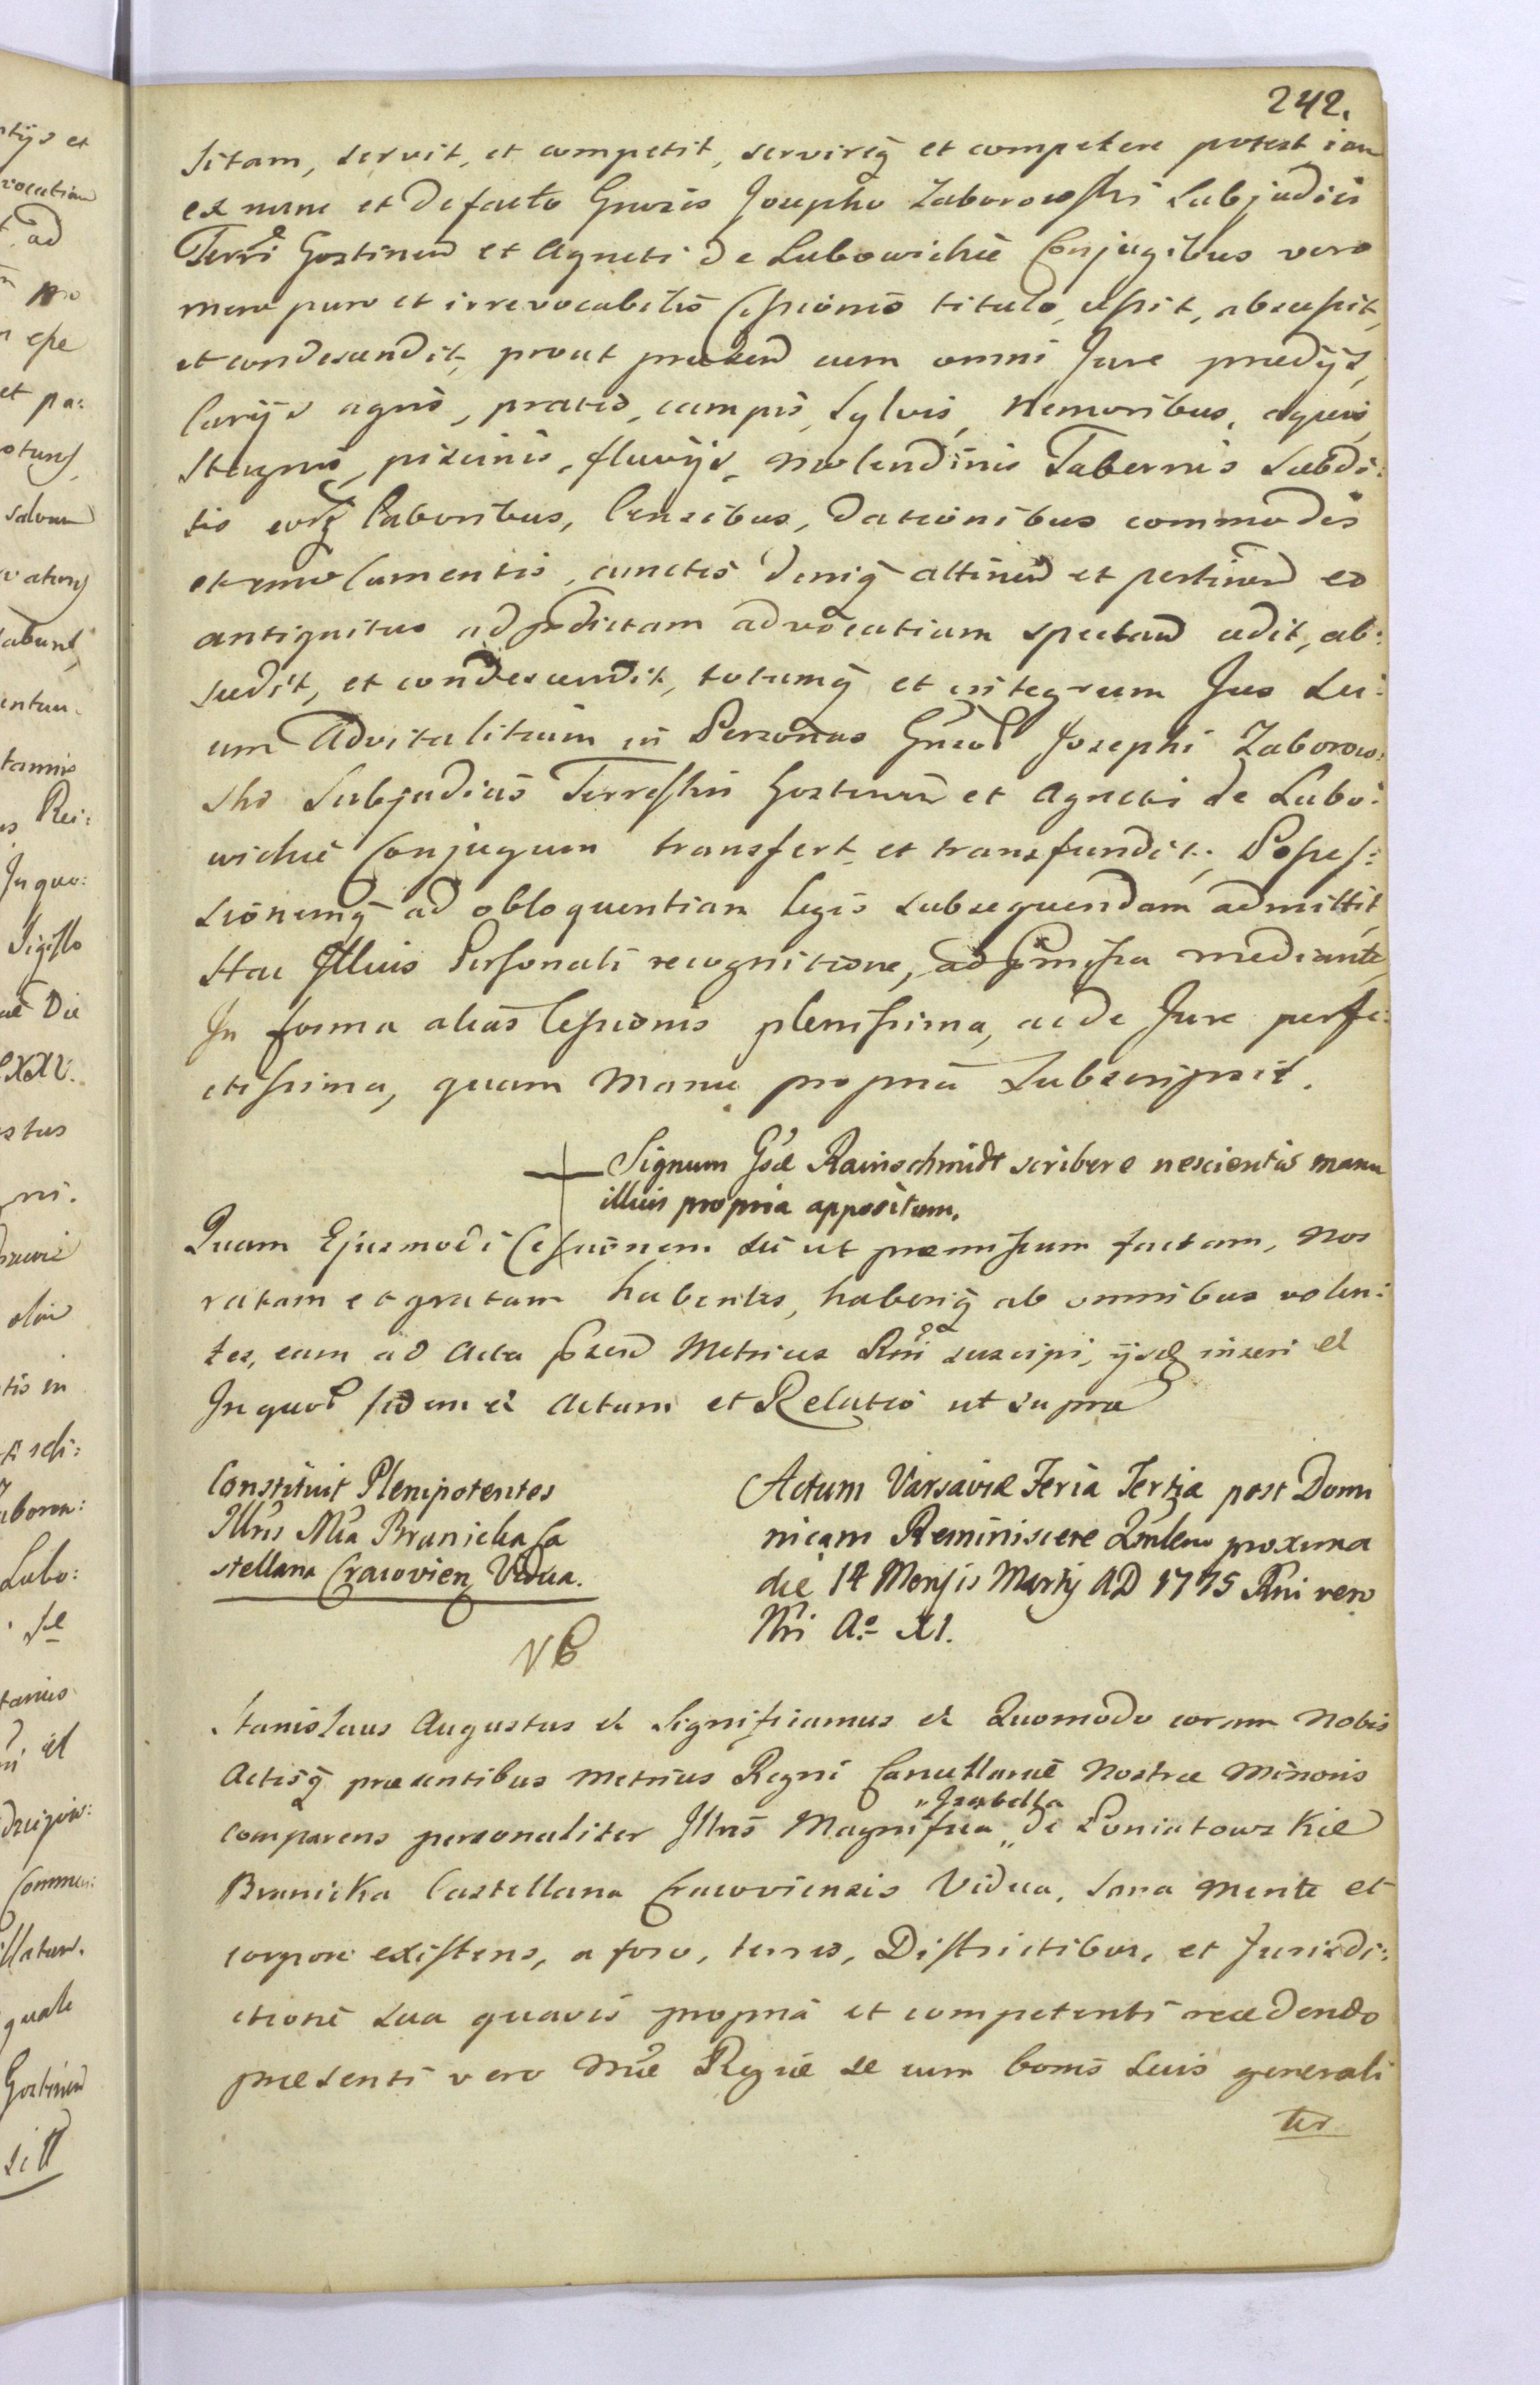 242.
sitam, servit, et competit, servireq̃ et competere potest iam
ex nunc et defacto Gnosis Josepho Zaborowski Subjudici
Terri Gostinen et Agneti de Lubowichie Conjugibus vero
mero puro et irrevocabilis Cessionis titulo, cessit, abscessit,
et condescendit, prout praesen cum omni Jure praedijs,
larijs agris, pratis, campis, Sylvis, Nemoribus, aquis,
Stagnis, piscinis, fluvijs, Molendinis Tabernis Subdi:
tis eorq̃ laboribus, Censibus, dationibus commodis
et emolumentis, cunctis deniq̃ attinen et pertinen ex
antiquitus ad pdictam advocatiam spectan cedit, ab:
scedit, et condescendit, totumq̃ et integrum Jus su:
um Advitalitium in Personas Gnod Josephi Zaborow:
ski Subjudicis Terrestris Gostinen et Agneti de Lubo:
wichie Conjugum transfert et transfundit, Posses:
sionemq̃ ad obloquentiam legis subsequendam admittit,
Hac Illius Personali recognitione, ad pmissa mediante,
In forma alias Cessionis plenissima, ac de Jure perfe:
ctissima, quam Manu propria Subscripsit.
Signum Gsæ Rainschmidt scribere nescientis manu
illius propria appositum.
Quam Ejusmodi Cessionem sic ut praemissum factam, Nos
ratam et gratam habentes, haberiq̃ ab omnibus volen:
tes, eam ad Acta psen Metrices Rni suscipi, ijsq̃ inseri et
In quor fidem et Actum et Relatio ut supra
Constituit Plenipotentes
Illris Mca Branicka Ca
stellana Cracovien Vidua.
NB
Actum Varsaviæ Feria Tertia post Domi
nicam Reminiscere Qdnlem proxima
die 14 Mensis Martij AD 1775 Rni vero
Nri Ao XI.
Stanislaus Augustus et Significamus et Quomodo coram Nobis
Actisq̃ praesentibus Metrices Regni Cancellariae Nostrae Minoris
comparens personaliter Illris Magnifica „Izabella„ de Poniatowskie
Branicka Castellana Cracoviensis Vidua, sana mente et
corpore existens, a foro, terris, Districtibus, et Jurisdi:
ctione sua quavis propria et competenti recedendo
praesenti vero Mcae Regiae se cum bonis suis generali
ter